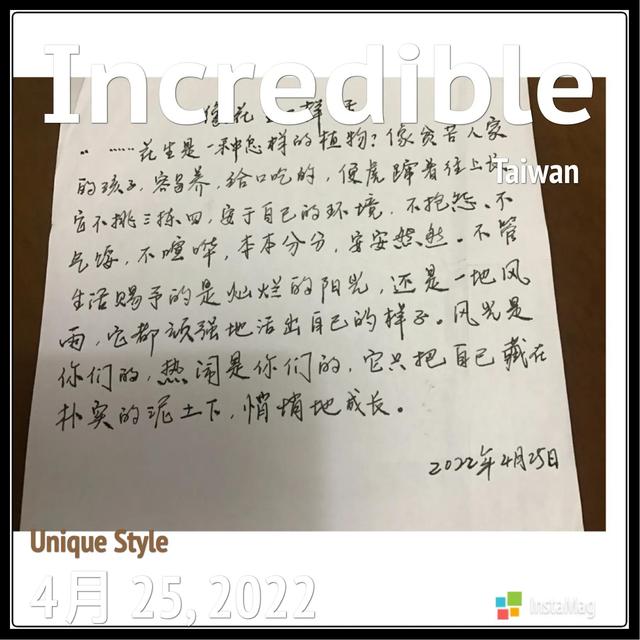 Incredible
Taiwan
像花
"……花生是一种怎样的植物？像贫苦人家
的孩子，容易养，给口吃的，便虎蹿着往上
它不挑三拣四，安于自己的环境，不抱怨、不
气馁，不喧哗，本本分分，安安然然。不管
生活赐予的是灿烂的阳光，还是一地风
雨，它都顽强地活出自己的样子。风光是
你们的，热闹是你们的，它只把自己藏在
朴实的泥土下，悄悄地成长。
2022年4月25日
Unique Style
4月 25, 2022
InstaMag